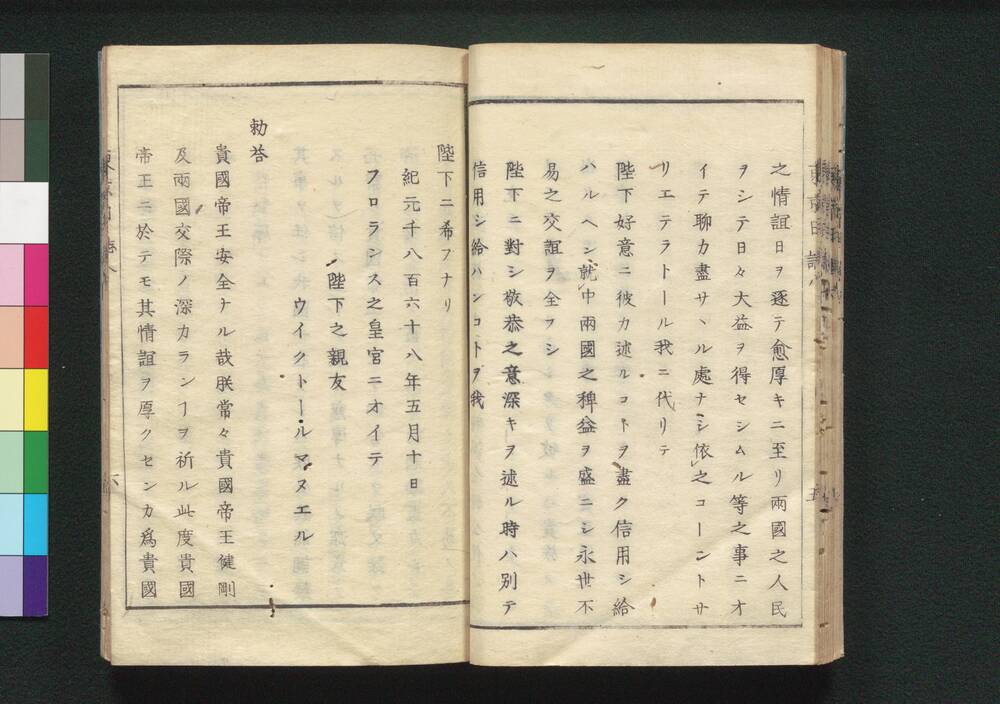 之情誼日ヲ逐テ愈厚キニ至リ兩國之人民
ヲシテ日々大益ヲ得セシムル等之事ニオ
イテ聊カ盡サヽル處ナシ依之コーントサ
リエテラトール我ニ代リテ
陛下好意ニ彼カ述ルコトヲ盡ク信用シ給
ハルヘシ就中兩國之稗益ヲ盛ニシ永世不
易之交誼ヲ全フシ
陛下ニ對シ敬恭之意深キヲ述ル時ハ別テ
信用シ給ハンコトヲ我
陛下ニ希フナリ
紀元千八百六十八年五月十日
フロランス之皇宮ニオイテ
陛下之親友
ウイクトー・ルマヌエル
勅答
貴國帝王安全ナル哉朕常々貴國帝王健剛
及兩國交際ノ深カランヿヲ祈ル此度貴國
帝王ニ於テモ其情誼ヲ厚クセンカ爲貴國